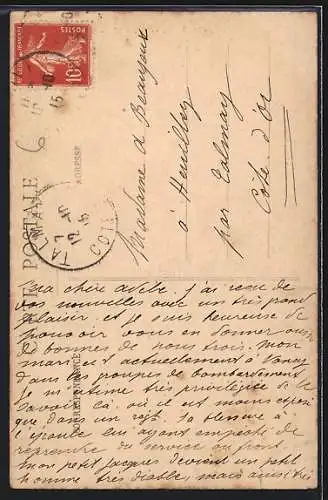 POSTES
10c
CARTE POSTALE
ADRESSE
CORRESPONDANCE
TALMAY
7-10
15
CÔTE
Madame de Beaujoux
à Heuilley
par Talmay
Cote d'Or
6
Ma chère Adèle. J'ai reçu de
vos nouvelles avec un très grand
plaisir. et je suis heureuse de
pouvoir vous en donner aussi
de bonnes de nous trois. Mon
mari est actuellement à Nancy
dans les groupes de bombardement
je m'estime très privilégiée de le
savoir là, où il est moins exposé
que dans un
l'épaule lui ayant empêché de
reprendre du service au front.
mon petit Jacques devient un petit
homme très diable, mais aussi très